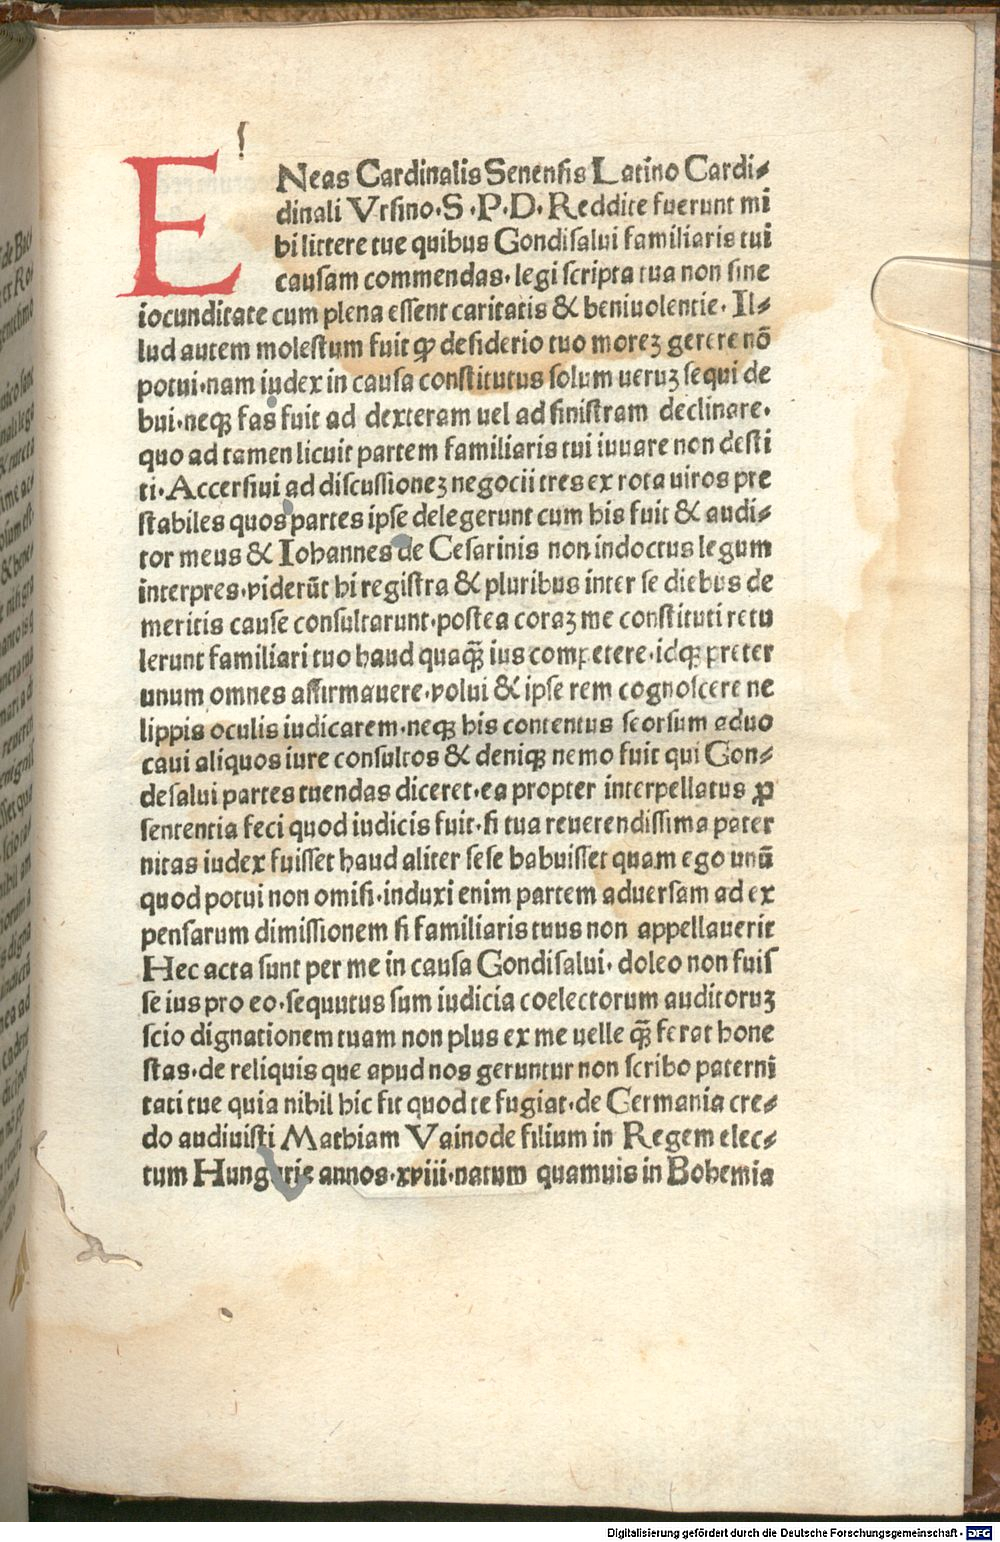 ENeas Cardinalis Senensis Latino Cardi⸗
dinali Vrsino·S·P·D·Reddite fuerunt mi
hi littere tue quibus Gondisalui familiaris tui
causam commendas·legi scripta tua non sine
iocunditate cum plena essent caritatis & beniuolentie·Il⸗
lud autem molestum fuit ꝙ desiderio tuo moreꝫ gerere nō
potui·nam iudex in causa constitutus solum ueruꝫ sequi de
bui·neqꝫ fas fuit ad dexteram uel ad sinistram declinare·
quo ad tamen licuit partem familiaris tui iuuare non desti
ti·Accersiui ad discussioneꝫ negocii tres ex rota uiros pre
stabiles quos partes ipse delegerunt cum his fuit & audi⸗
tor meus & Iohannes de Cesarinis non indoctus legum
interpres·viderūt hi registra & pluribus inter se diebus de
meritis cause consultarunt·postea coraꝫ me constituti retu
lerunt familiari tuo haud quaqꝫ̄ ius competere·idqꝫ preter
unum omnes affirmauere·volui & ipse rem cognoscere ne
lippis oculis iudicarem·neqꝫ his contentus seorsum aduo
caui aliquos iure consultos & deniqꝫ nemo fuit qui Gon⸗
desalui partes tuendas diceret·ea propter interpellatus ꝓ
sententia feci quod iudicis fuit·si tua reuerendissima pater
nitas iudex fuisset haud aliter sese habuisset quam ego unū
quod potui non omisi·induxi enim partem aduersam ad ex
pensarum dimissionem si familiaris tuus non appellauerit
Hec acta sunt per me in causa Gondisalui·doleo non fuis
se ius pro eo·sequutus sum iudicia coelectorum auditoruꝫ
scio dignationem tuam non plus ex me uelle qꝫ̄ ferat hone
stas·de reliquis que apud nos geruntur non scribo paterni
tati tue quia nihil hic fit quod te fugiat·de Germania cre⸗
do audiuisti Mathiam Vainode filium in Regem elec⸗
tum Hungarie annos·xviii·natum quamuis in Bohemia
Digitalisierung gefördert durch die Deutsche Forschungsgemeinschaft - DFG